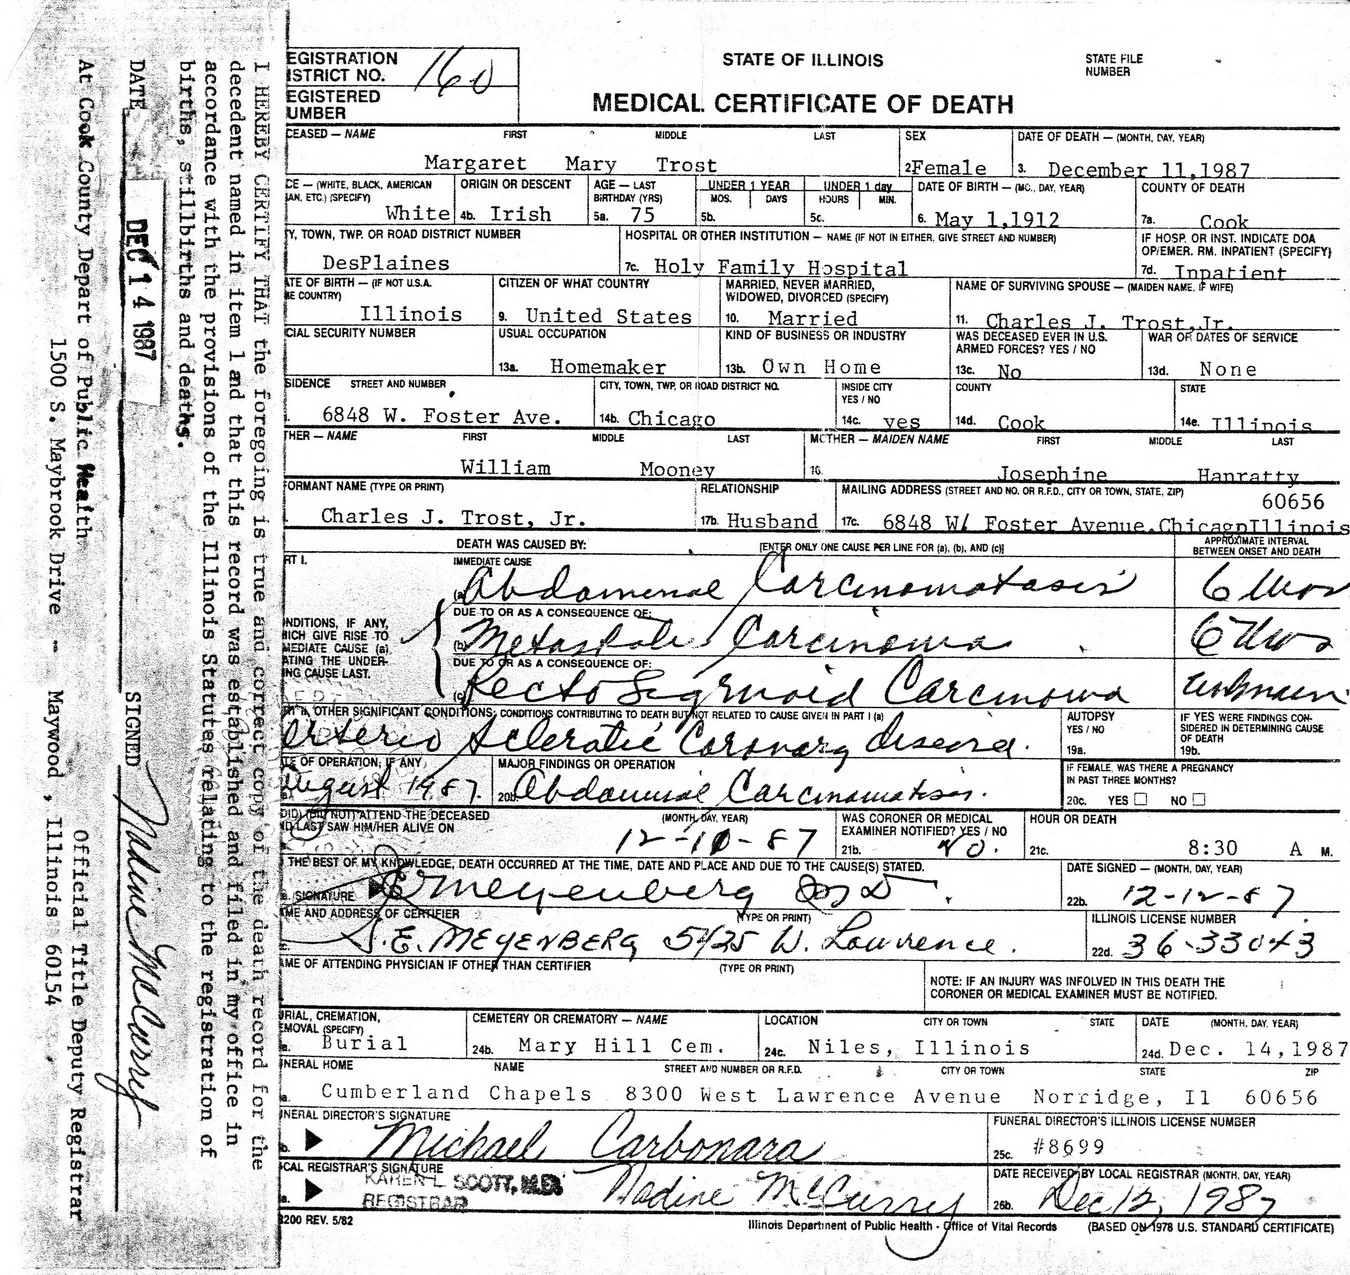 EGISTRATION
ISTRICT NO. 160
EGISTERED
UMBER
STATE OF ILLINOIS
MEDICAL CERTIFICATE OF DEATH
STATE FILE
NUMBER
CEASED — NAME FIRST MIDDLE LAST SEX DATE OF DEATH — (MONTH, DAY, YEAR)
Margaret Mary Trost 2 Female 3. December 11,1987
CE — (WHITE, BLACK, AMERICAN ORIGIN OR DESCENT AGE — LAST UNDER 1 YEAR UNDER 1 day DATE OF BIRTH — (MO., DAY, YEAR) COUNTY OF DEATH
AN, ETC.) (SPECIFY) BIRTHDAY (YRS) MOS. DAYS HOURS MIN.
White 4b. Irish 5a. 75 5b. 5c. 6. May 1,1912 7a. Cook
Y, TOWN, TWP. OR ROAD DISTRICT NUMBER HOSPITAL OR OTHER INSTITUTION — NAME (IF NOT IN EITHER, GIVE STREET AND NUMBER) IF HOSP. OR INST. INDICATE DOA
OP/EMER. RM. INPATIENT (SPECIFY)
DesPlaines 7c. Holy Family Hospital 7d. Inpatient
ATE OF BIRTH — (IF NOT U.S.A. CITIZEN OF WHAT COUNTRY MARRIED, NEVER MARRIED, NAME OF SURVIVING SPOUSE — (MAIDEN NAME, IF WIFE)
ME COUNTRY) WIDOWED, DIVORCED (SPECIFY)
Illinois 9. United States 10. Married 11. Charles J. Trost,Jr.
CIAL SECURITY NUMBER USUAL OCCUPATION KIND OF BUSINESS OR INDUSTRY WAS DECEASED EVER IN U.S. WAR OR DATES OF SERVICE
ARMED FORCES? YES / NO
13a. Homemaker 13b. Own Home 13c. No 13d. None
SIDENCE STREET AND NUMBER CITY, TOWN, TWP, OR ROAD DISTRICT NO. INSIDE CITY COUNTY STATE
YES / NO
6848 W. Foster Ave. 14b. Chicago 14c. yes 14d. Cook 14e. Illinois
THER — NAME FIRST MIDDLE LAST MOTHER — MAIDEN NAME FIRST MIDDLE LAST
William Mooney 16. Josephine Hanratty
FORMANT NAME (TYPE OR PRINT) RELATIONSHIP MAILING ADDRESS (STREET AND NO. OR R.F.D., CITY OR TOWN, STATE, ZIP)
60656
Charles J. Trost, Jr. 17b. Husband 17c. 6848 W. Foster Avenue,Chicago Illinois
DEATH WAS CAUSED BY: [ENTER ONLY ONE CAUSE PER LINE FOR (a), (b), AND (c)] APPROXIMATE INTERVAL
BETWEEN ONSET AND DEATH
RT I. IMMEDIATE CAUSE
(a) Abdominal Carcinomatosis 6 Mos
DUE TO OR AS A CONSEQUENCE OF:
NDITIONS, IF ANY,
HICH GIVE RISE TO
MEDIATE CAUSE (a)
ATING THE UNDER-
NG CAUSE LAST.
(b) Metastatic Carcinoma 6 Mos
DUE TO OR AS A CONSEQUENCE OF:
(c) Recto Sigmoid Carcinoma unknown
OTHER SIGNIFICANT CONDITIONS: CONDITIONS CONTRIBUTING TO DEATH BUT NOT RELATED TO CAUSE GIVEN IN PART I (a) AUTOPSY IF YES WERE FINDINGS CON-
YES / NO SIDERED IN DETERMINING CAUSE
OF DEATH
Arterio Scleratic Coronary disease. 19a. 19b.
TE OF OPERATION, IF ANY MAJOR FINDINGS OR OPERATION IF FEMALE, WAS THERE A PREGNANCY
IN PAST THREE MONTHS?
August 1987. 20b. Abdominal Carcinomatosis. 20c. YES NO
(DID) (DID NOT) ATTEND THE DECEASED (MONTH, DAY, YEAR) WAS CORONER OR MEDICAL HOUR OR DEATH
ND LAST SAW HIM/HER ALIVE ON EXAMINER NOTIFIED? YES / NO
12-10-87 21b. NO. 21c. 8:30 A M.
THE BEST OF MY KNOWLEDGE, DEATH OCCURRED AT THE TIME, DATE AND PLACE AND DUE TO THE CAUSE(S) STATED. DATE SIGNED — (MONTH, DAY, YEAR)
SIGNATURE EMeyenberg MD 22b. 12-12-87
AME AND ADDRESS OF CERTIFIER (TYPE OR PRINT) ILLINOIS LICENSE NUMBER
S.E. MEYENBERG 5425 W. Lawrence. 22d. 36-33043
AME OF ATTENDING PHYSICIAN IF OTHER THAN CERTIFIER (TYPE OR PRINT) NOTE: IF AN INJURY WAS INVOLVED IN THIS DEATH THE
CORONER OR MEDICAL EXAMINER MUST BE NOTIFIED.
RIAL, CREMATION, CEMETERY OR CREMATORY — NAME LOCATION CITY OR TOWN STATE DATE (MONTH, DAY, YEAR)
MOVAL (SPECIFY)
Burial 24b. Mary Hill Cem. 24c. Niles, Illinois 24d. Dec. 14,1987
NERAL HOME NAME STREET AND NUMBER OR R.F.D. CITY OR TOWN STATE ZIP
Cumberland Chapels 8300 West Lawrence Avenue Norridge, Il 60656
NERAL DIRECTOR'S SIGNATURE FUNERAL DIRECTOR'S ILLINOIS LICENSE NUMBER
Michael Carbonara 25c. #8699
CAL REGISTRAR'S SIGNATURE DATE RECEIVED BY LOCAL REGISTRAR (MONTH, DAY, YEAR)
KAREN L. SCOTT, M.D.
REGISTRAR
Nadine McCurry 26b. Dec 12, 1987
200 REV. 5/82 Illinois Department of Public Health - Office of Vital Records (BASED ON 1978 U.S. STANDARD CERTIFICATE)
I HEREBY CERTIFY THAT the foregoing is true and correct copy of the death record for the
decedent named in item 1 and that this record was established and filed in my office in
accordance with the provisions of the Illinois Statutes relating to the registration of
births, stillbirths and deaths.
DATE DEC 14 1987 SIGNED Nadine McCurry
At Cook County Depart of Public Health Official Title Deputy Registrar
1500 S. Maybrook Drive - Maywood , Illinois 60154